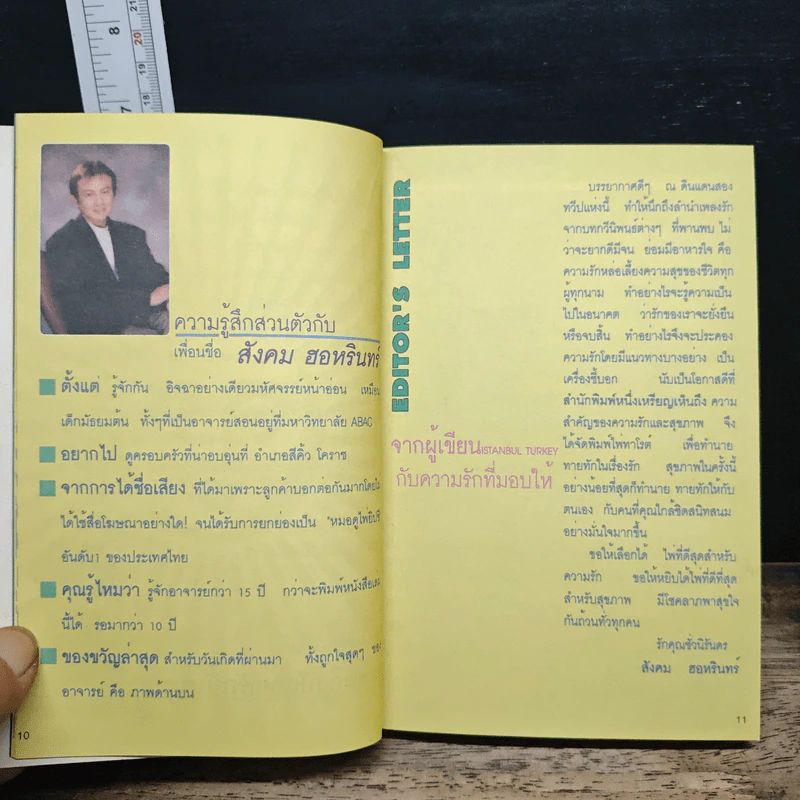 8
7
20
19
18
ความรู้สึกส่วนตัวกับ
เพื่อนชื่อ สังคม ฮอหรินทร์
ตั้งแต่ รู้จักกัน อิจฉาอย่างเดียวมหัศจรรย์หน้าอ่อน เหมือน
เด็กมัธยมต้น ทั้งๆที่เป็นอาจารย์สอนอยู่ที่มหาวิทยาลัย ABAC
อยากไป ดูครอบครัวที่น่าอบอุ่นที่ อำเภอสีคิ้ว โคราช
จากการได้ชื่อเสียง ที่ได้มาเพราะลูกค้าบอกต่อกันมากโดยไม่
ได้ใช้สื่อโฆษณาอย่างใด! จนได้รับการยกย่องเป็น "หมอดูไพ่ยิปซี
อันดับ1 ของประเทศไทย
คุณรู้ไหมว่า รู้จักอาจารย์กว่า 15 ปี กว่าจะพิมพ์หนังสือเล่ม
นี้ได้ รอมากว่า 10 ปี
ของขวัญล่าสุด สำหรับวันเกิดที่ผ่านมา ทั้งถูกใจสุดๆ ของ
อาจารย์ คือ ภาพด้านบน
10
EDITOR'S LETTER
จากผู้เขียน ISTANBUL TURKEY
กับความรักที่มอบให้
บรรยากาศดีๆ ณ ดินแดนสอง
ทวีปแห่งนี้ ทำให้นึกถึงลำนำเพลงรัก
จากบทกวีนิพนธ์ต่างๆ ที่พานพบ ไม่
ว่าจะยากดีมีจน ย่อมมีอาหารใจ คือ
ความรักหล่อเลี้ยงความสุขของชีวิตทุก
ผู้ทุกนาม ทำอย่างไรจะรู้ความเป็น
ไปในอนาคต ว่ารักของเราจะยั่งยืน
หรือจบสิ้น ทำอย่างไรจึงจะประคอง
ความรักโดยมีแนวทางบางอย่าง เป็น
เครื่องชี้บอก นับเป็นโอกาสดีที่
สำนักพิมพ์หนึ่งเหรียญเห็นถึง ความ
สำคัญของความรักและสุขภาพ จึง
ได้จัดพิมพ์ไพ่ทาโรต์ เพื่อทำนาย
ทายทักในเรื่องรัก สุขภาพในครั้งนี้
อย่างน้อยที่สุดก็ทำนาย ทายทักให้กับ
ตนเอง กับคนที่คุณใกล้ชิดสนิทสนม
อย่างมั่นใจมากขึ้น
ขอให้เลือกได้ ไพ่ที่ดีสุดสำหรับ
ความรัก ขอให้หยิบได้ไพ่ที่ดีที่สุด
สำหรับสุขภาพ มีโชคลาภพาสุขใจ
กันถ้วนทั่วทุกคน
รักคุณชั่วนิรันดร
สังคม ฮอหรินทร์
11